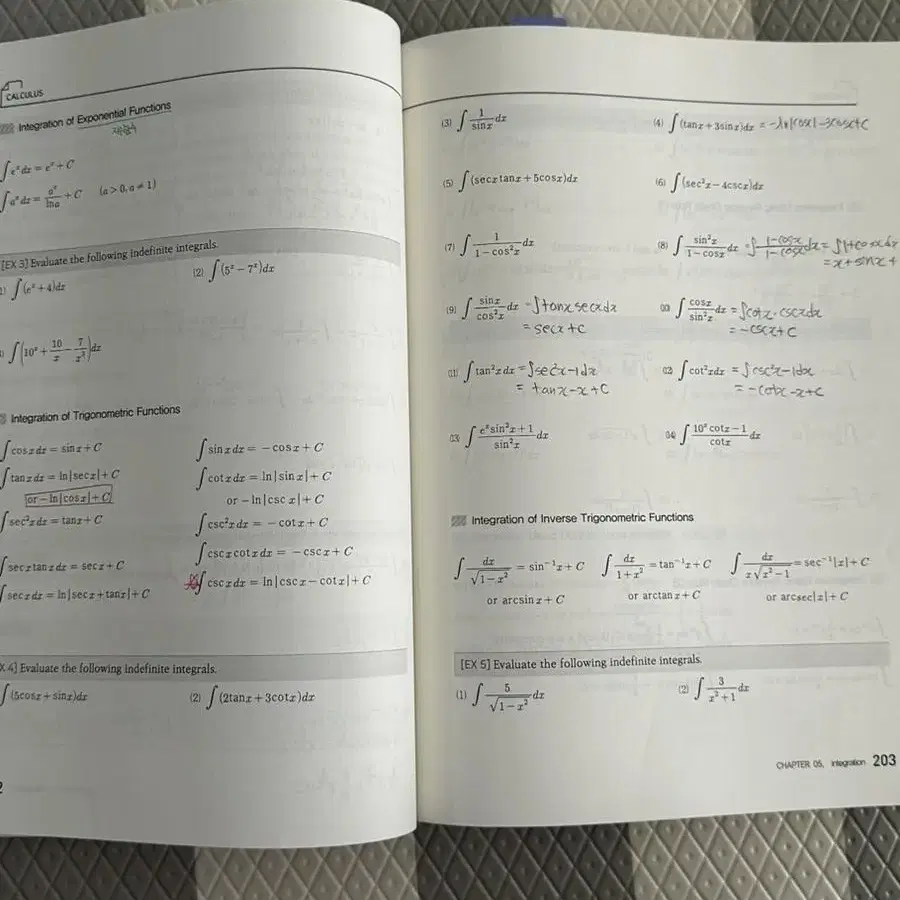 CALCULUS
Integration of Exponential Functions
∫eˣdx = eˣ + C
∫aˣdx = aˣ/ln a + C (a > 0, a ≠ 1)
[EX 3] Evaluate the following indefinite integrals.
∫(eˣ + 4)dx (2) ∫(5ˣ − 7ˣ)dx
∫(10ˣ + 10/x − 7/x²)dx
Integration of Trigonometric Functions
∫cosxdx = sinx + C ∫sinxdx = −cosx + C
∫tanxdx = ln|secx| + C ∫cotxdx = ln|sinx| + C
or −ln|cosx| + C or −ln|csc x| + C
∫sec²xdx = tanx + C ∫csc²xdx = −cotx + C
∫secxtanxdx = secx + C ∫cscxcotxdx = −cscx + C
∫secxdx = ln|secx + tanx| + C ∫cscxdx = ln|cscx − cotx| + C
X 4] Evaluate the following indefinite integrals.
∫(5cosx + sinx)dx (2) ∫(2tanx + 3cotx)dx
(3) ∫1/sinx dx (4) ∫(tanx + 3sinx)dx = −ln|cosx| −3cosx+C
(5) ∫(secxtanx + 5cosx)dx (6) ∫(sec²x − 4cscx)dx
(7) ∫1/(1 − cos²x) dx (8) ∫sin²x/(1 − cosx) dx = ∫(1−cos²x)/(1−cosx) dx = ∫1+cosxdx
= x+sinx+
(9) ∫sinx/cos²x dx = ∫tanx secxdx (10) ∫cosx/sin²x dx = ∫cotx·cscxdx
= secx+C = −cscx+C
(11) ∫tan²xdx = ∫sec²x−1dx (12) ∫cot²xdx = ∫csc²x−1dx
= tanx−x+C = −cotx−x+C
(13) ∫(eˣsin²x + 1)/sin²x dx (14) ∫(10ˣcotx − 1)/cotx dx
Integration of Inverse Trigonometric Functions
∫dx/√(1−x²) = sin⁻¹x + C ∫dx/(1+x²) = tan⁻¹x + C ∫dx/(x√(x²−1)) = sec⁻¹|x| + C
or arcsin x + C or arctan x + C or arcsec|x| + C
[EX 5] Evaluate the following indefinite integrals.
(1) ∫5/√(1−x²) dx (2) ∫3/(x²+1) dx
CHAPTER 05. Integration 203